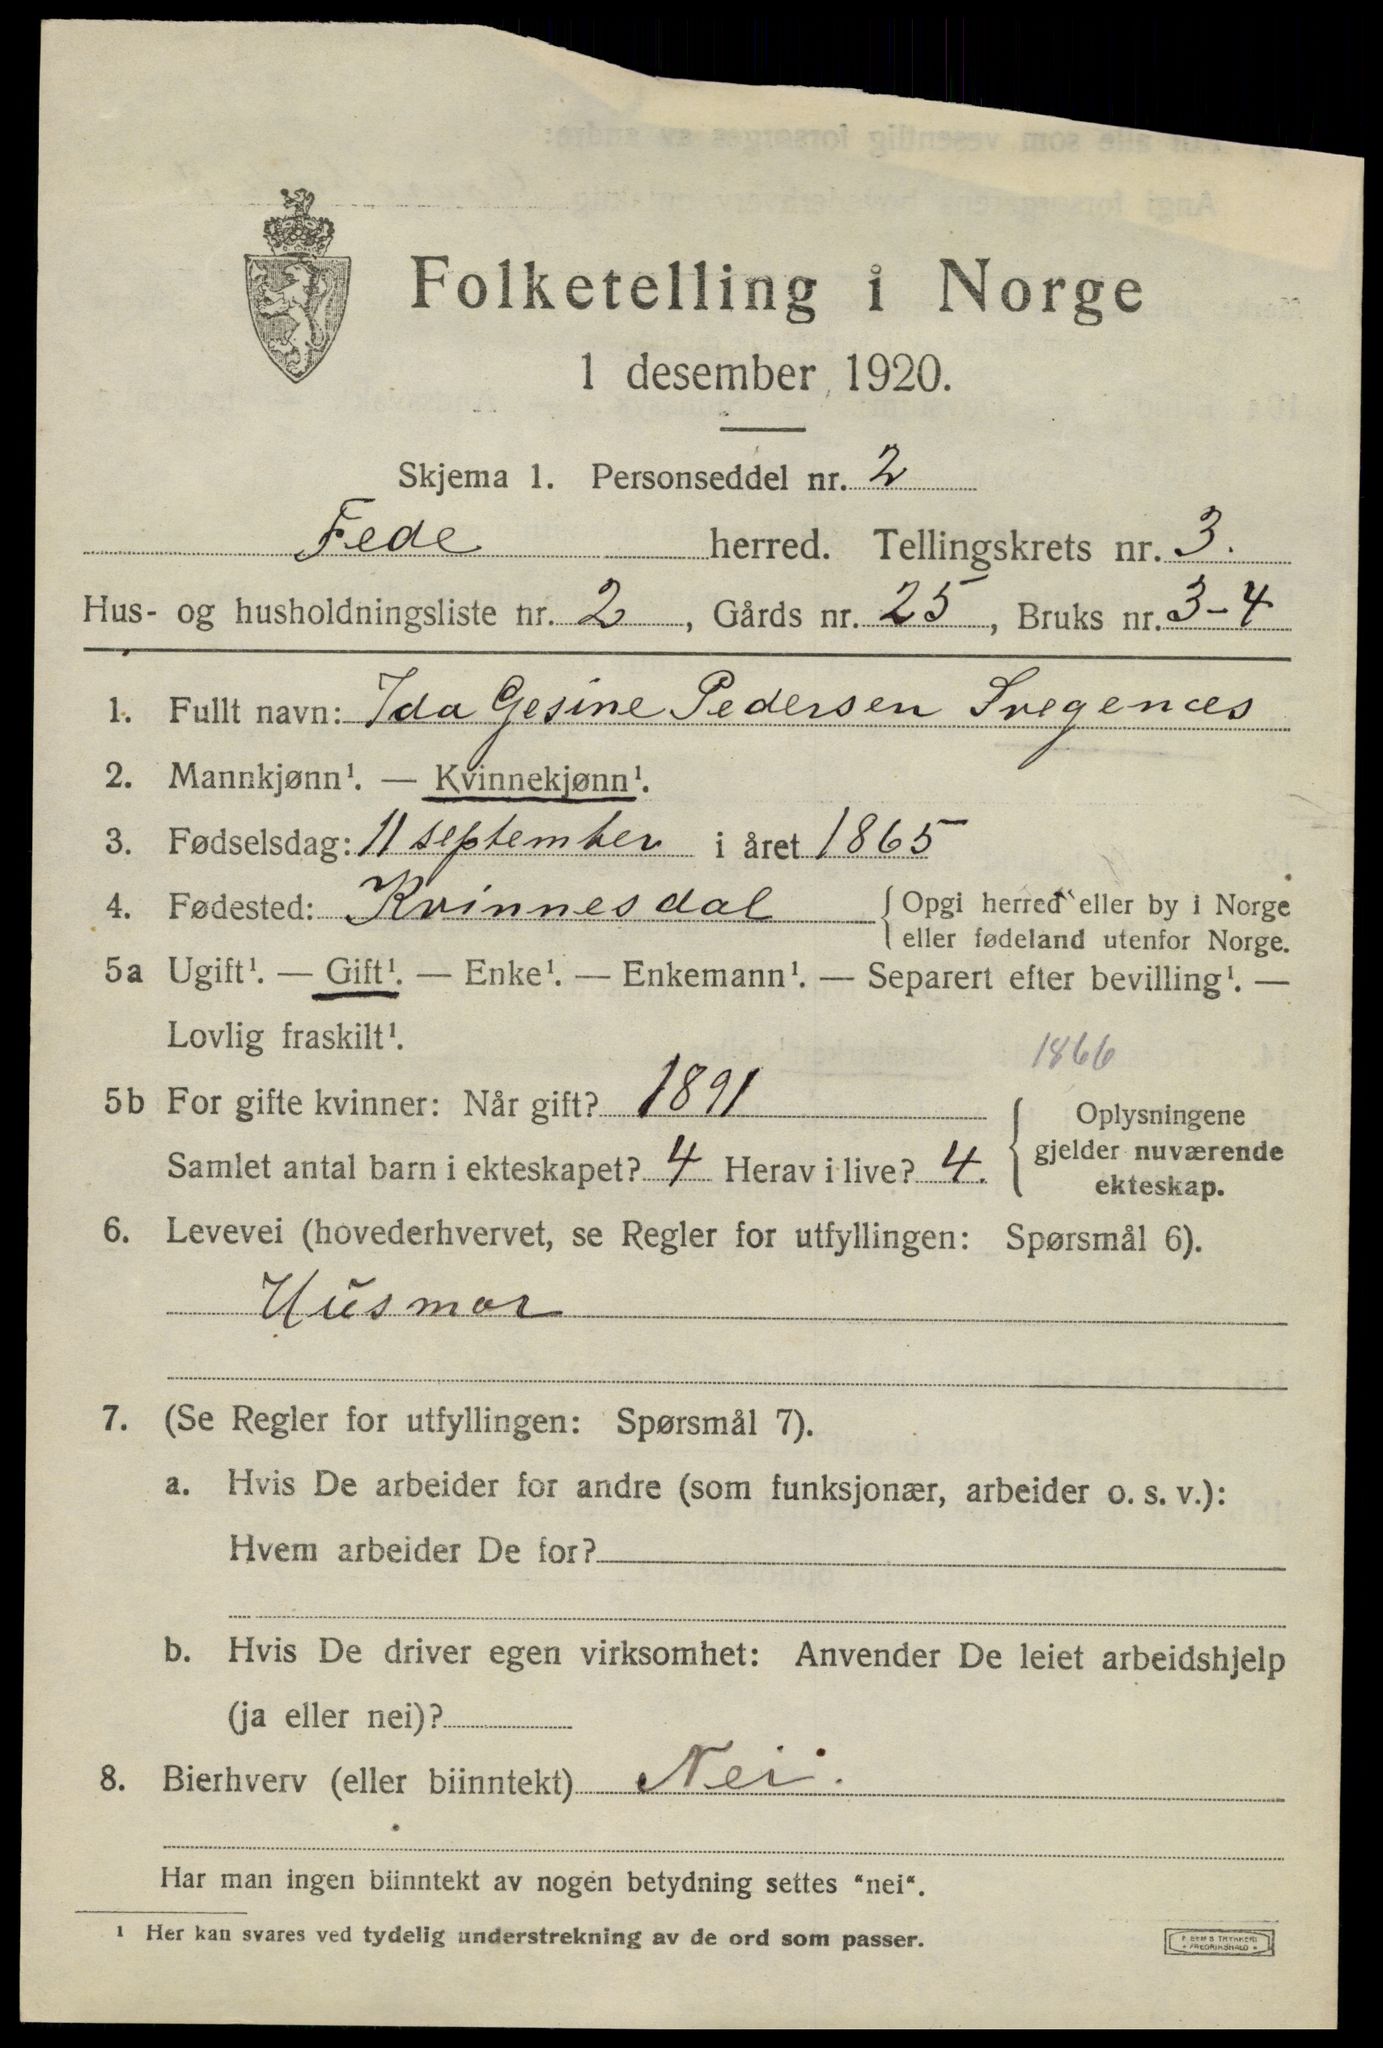 Folketelling i Norge
1 desember 1920.
Skjema 1. Personseddel nr. 2
Fede herred. Tellingskrets nr. 3.
Hus- og husholdningsliste nr. 2, Gårds nr. 25, Bruks nr. 3-4
1. Fullt navn: Ida Gesine Pedersen Svegenæs
2. Mannkjønn¹. — Kvinnekjønn¹.
3. Fødselsdag: 11 september i året 1865
4. Fødested: Kvinnesdal { Opgi herred eller by i Norge
eller fødeland utenfor Norge.
5a Ugift¹. — Gift¹. — Enke¹. — Enkemann¹. — Separert efter bevilling¹. —
Lovlig fraskilt¹.
1866
5b For gifte kvinner: Når gift? 1891
Samlet antal barn i ekteskapet? 4 Herav i live? 4.
{ Oplysningene
gjelder nuværende
ekteskap.
6. Levevei (hovederhvervet, se Regler for utfyllingen: Spørsmål 6).
Husmor
7. (Se Regler for utfyllingen: Spørsmål 7).
a. Hvis De arbeider for andre (som funksjonær, arbeider o. s. v.):
Hvem arbeider De for?
b. Hvis De driver egen virksomhet: Anvender De leiet arbeidshjelp
(ja eller nei)?
8. Bierhverv (eller biinntekt) Nei.
Har man ingen biinntekt av nogen betydning settes "nei".
¹ Her kan svares ved tydelig understrekning av de ord som passer.
FREDRIKSHALD